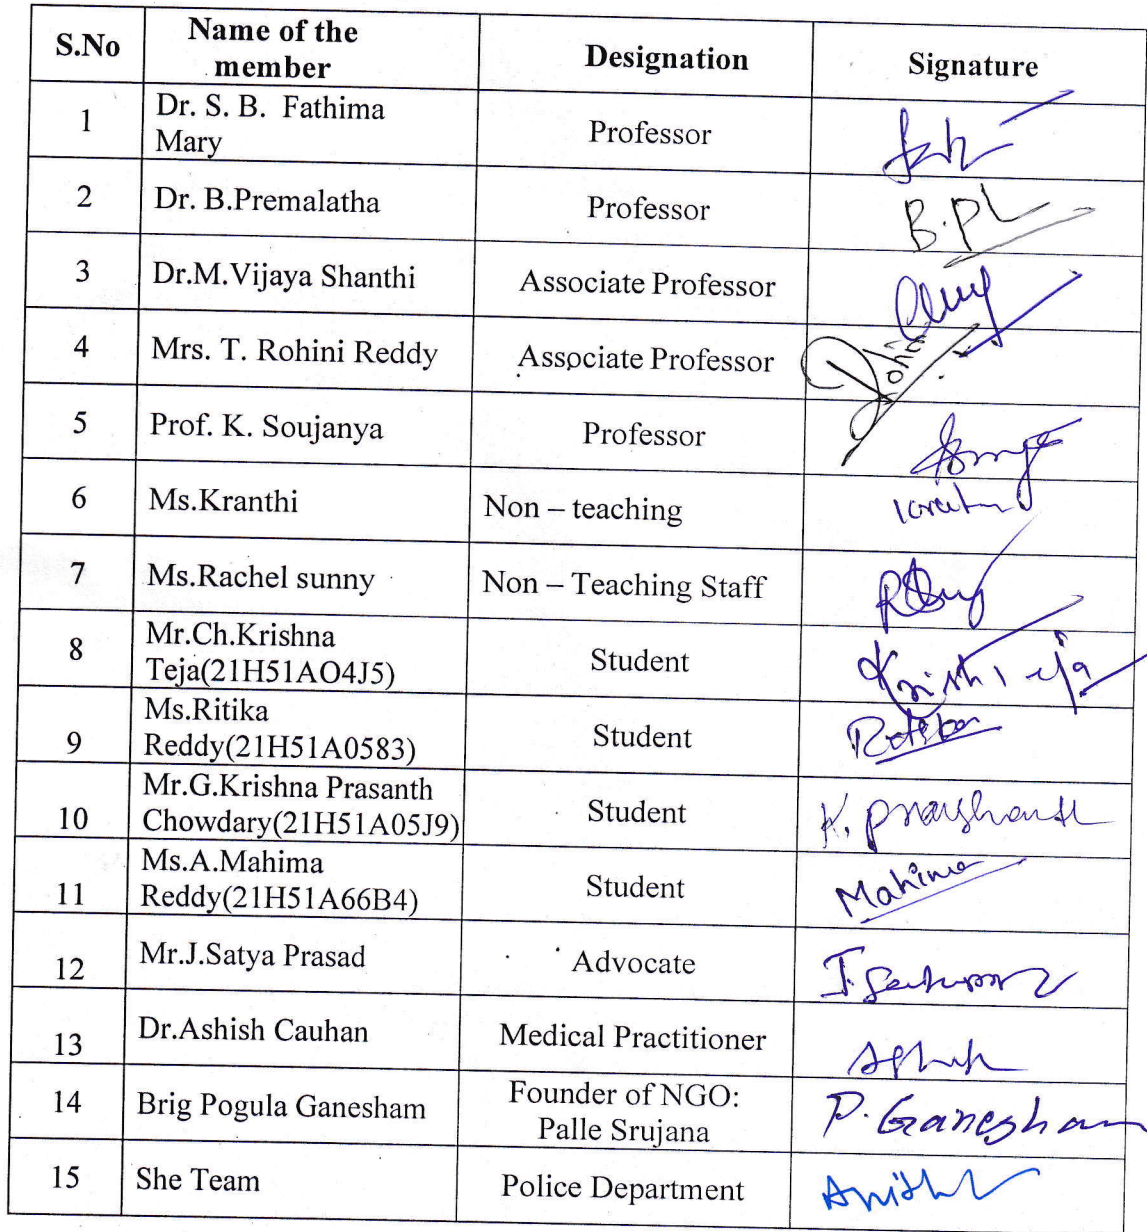 S.No Name of the member Designation Signature
1 Dr. S. B. Fathima Mary Professor
2 Dr. B.Premalatha Professor B.PL
3 Dr.M.Vijaya Shanthi Associate Professor
4 Mrs. T. Rohini Reddy Associate Professor Rohini
5 Prof. K. Soujanya Professor
6 Ms.Kranthi Non – teaching
7 Ms.Rachel sunny Non – Teaching Staff
8 Mr.Ch.Krishna Teja(21H51AO4J5) Student
9 Ms.Ritika Reddy(21H51A0583) Student
10 Mr.G.Krishna Prasanth Chowdary(21H51A05J9) Student K. Prashanth
11 Ms.A.Mahima Reddy(21H51A66B4) Student Mahima
12 Mr.J.Satya Prasad Advocate
13 Dr.Ashish Cauhan Medical Practitioner
14 Brig Pogula Ganesham Founder of NGO: Palle Srujana P. Ganesham
15 She Team Police Department